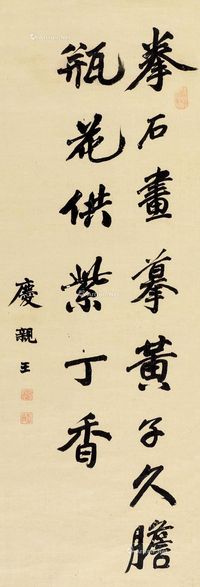 拳石畫摹黃子久膽
瓶花供紫丁香
慶親王